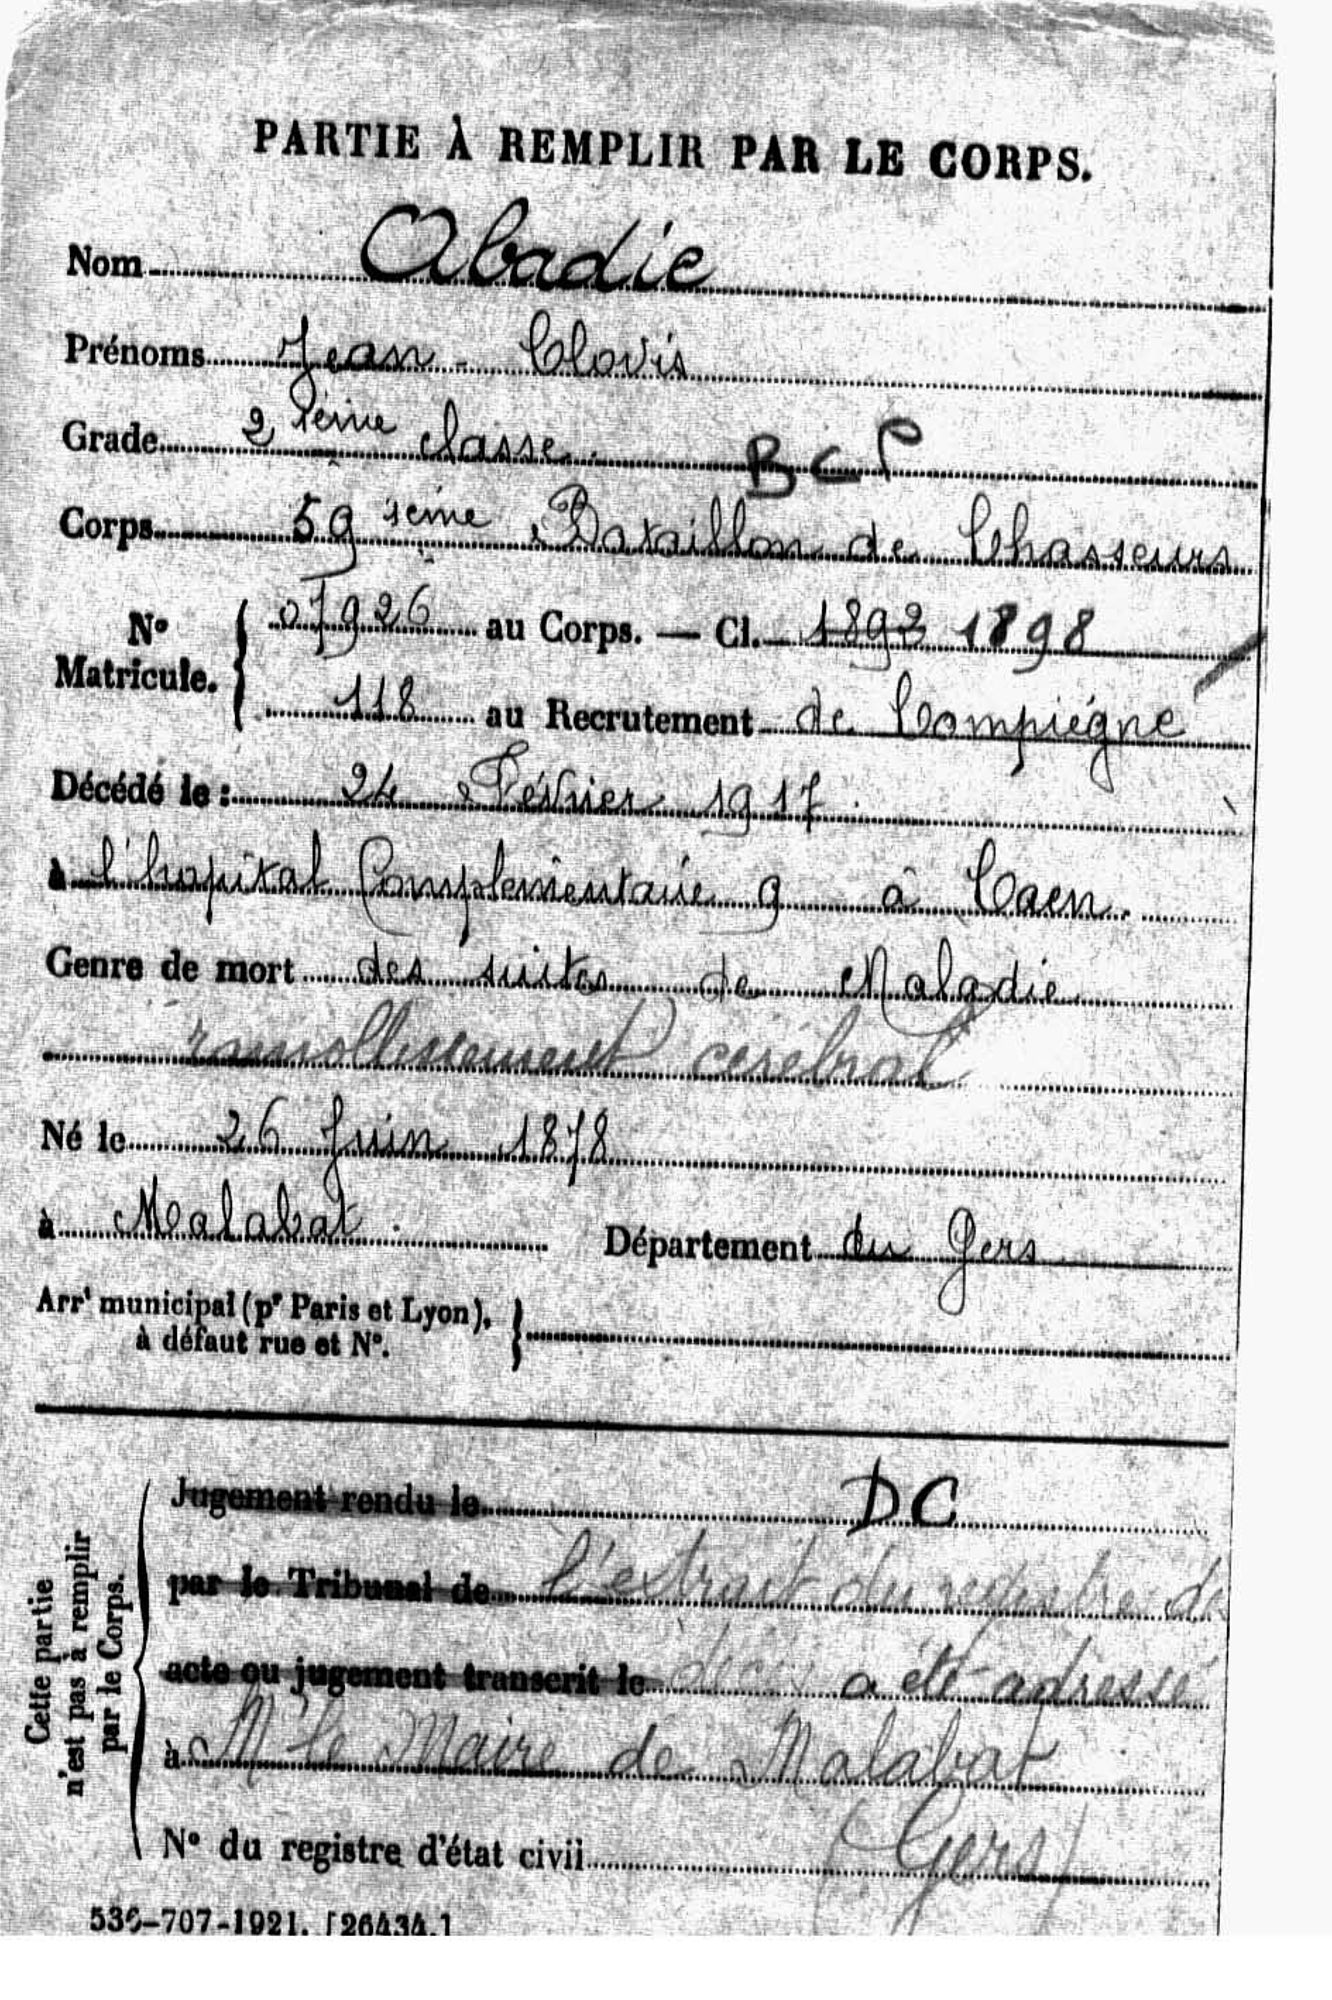 PARTIE À REMPLIR PAR LE CORPS.
Nom Abadie
Prénoms Jean - Clovis
Grade 2 ième classe. BCP
Corps 59 ième Bataillon de Chasseurs
N° Matricule. { 07926 au Corps. — Cl. 1892 1898
118 au Recrutement de Compiégne
Décédé le : 24 Février 1917.
à l'hopital Complémentaire 9 à Caen.
Genre de mort des suites de Maladie
ramollissement cérébral
Né le 26 Juin 1878
à Malabat. Département du Gers
Arrt municipal (pr Paris et Lyon),
à défaut rue et N°.
Cette partie
n'est pas à remplir
par le Corps.
Jugement rendu le DC
par le Tribunal de l'extrait du registre de
acte ou jugement transcrit le décès a été adressé
à M le Maire de Malabat
N° du registre d'état civil (Gers)
536-707-1921. [26434.]